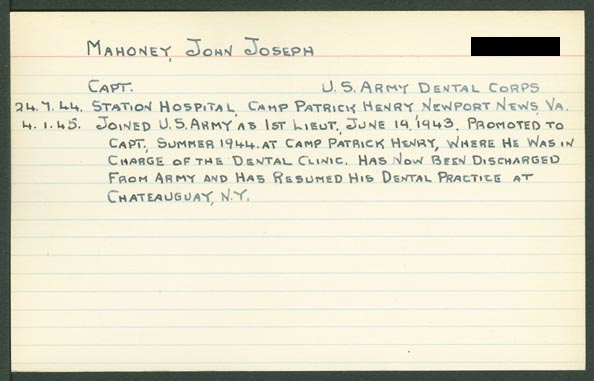 MAHONEY, JOHN JOSEPH
CAPT. U.S. ARMY DENTAL CORPS
24.7.44. STATION HOSPITAL, CAMP PATRICK HENRY, NEWPORT NEWS, VA.
4.1.45. JOINED U.S. ARMY AS 1ST LIEUT., JUNE 19, 1943. PROMOTED TO
CAPT., SUMMER 1944. AT CAMP PATRICK HENRY, WHERE HE WAS IN
CHARGE OF THE DENTAL CLINIC. HAS NOW BEEN DISCHARGED
FROM ARMY AND HAS RESUMED HIS DENTAL PRACTICE AT
CHATEAUGUAY, N.Y.